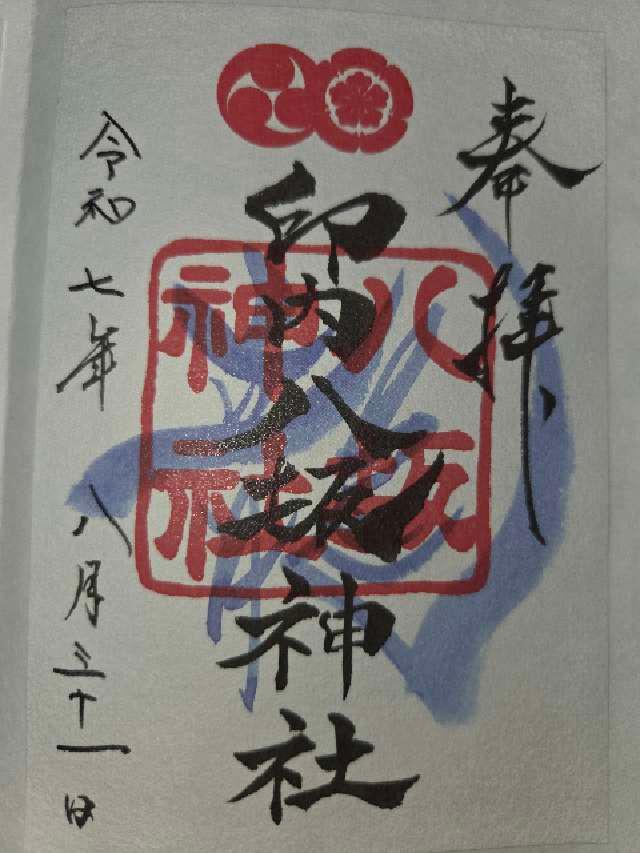 奉拝
印内八坂神社
八坂
神社
令和七年八月三十一日